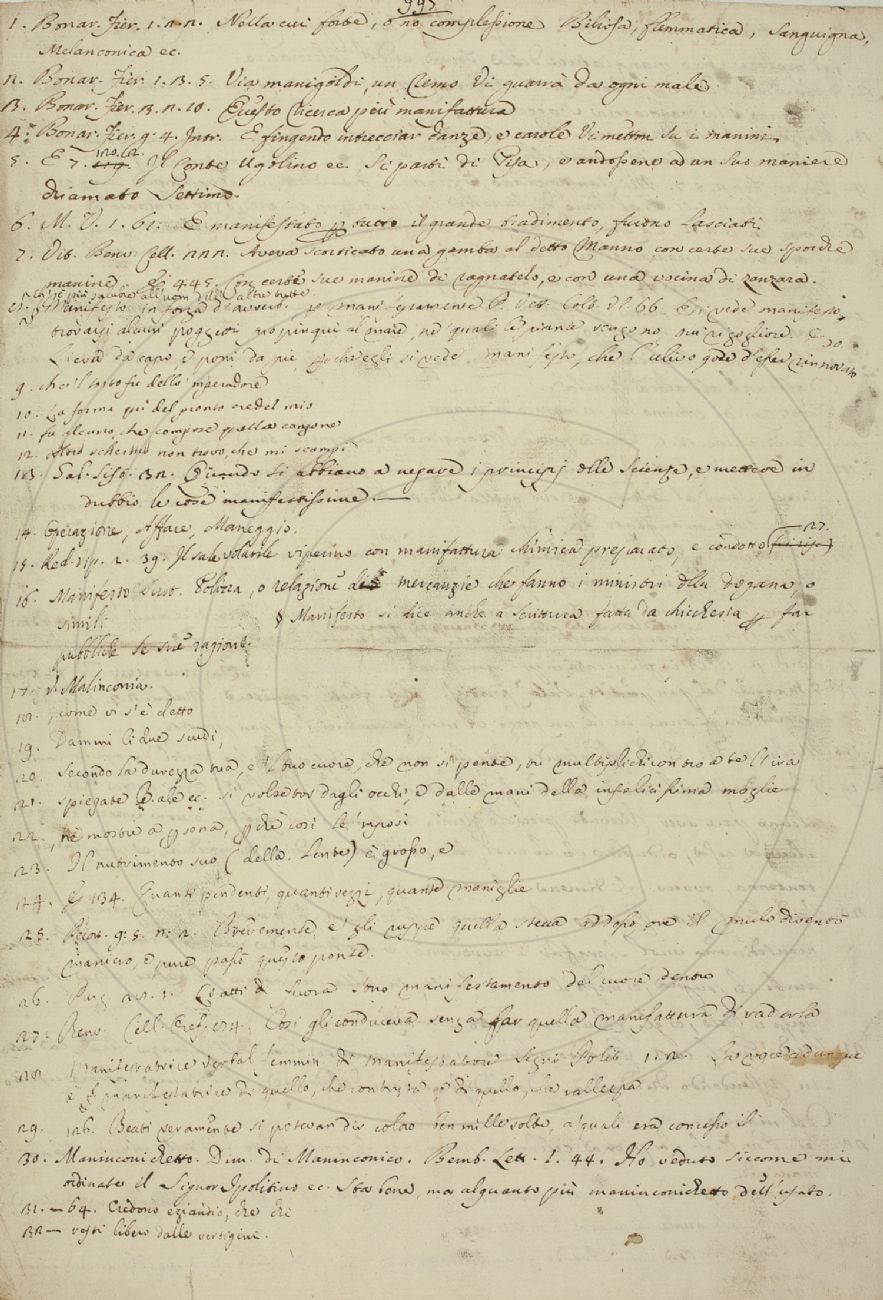 993
1. Bonar. Fier. 1. 2. 2. Nella cui forte, o no complessione Biliosa, flemmatica, Sanguigna,
Melanconica ec.
2. Bonar. Fier. 1. 3. 5. Via manigoldi, un Remo Vi quarrà da ogni male.
3. Bonar. Fier. 3. 2. 10. Questo ricerca più manifattura
4. Bonar. Fier. g. 4. Intr. E fingendo intrecciar danze, e carole Vi metton su i manini.
5. E 7. 120. 2. Il Conte Ugolino ec. Si partì di Pisa, e andossene ad un suo maniere
chiamato Settimo.
6. M. V. 1. 61. E manifestato per tutto il grande tradimento, furono lasciati
7. Vit. Benv. Cell. 222. Aveva scorticato una gamba al detto Manno con certe sue sporche
manine. E 445. Con certe sue manine di ragnatelo, e con una vocina di zanzara.
8. § Manifesto in forza d'avverb. per manifestamente V. Vett. Colt. 66. Si vede manifesto,
trovarsi alcuni poggiori propinqui al mare, ne' quali le piante vengono più rigogliose. E 20.
Lieva da capo, e poni da piè, perchè egli si vede manifesto, che l'ulivo gode d'esser rinnovato
9. che 'l tosto fu dello 'mperadore
10. La forma qui del pronto creder mio
11. fu alcuno, che compose quella canzone
12. Altro schermo non trovo, che mi scampi
13. Sal. Disc. 32. Quando si abbiano a negare i principj delle Scienze, e mettere in
dubbio le cose manifestissime. —
14. Operazione, Affare, Maneggio.
15. Red. Vip. 2. 39. Il sale volatile viperino con manifattura chimica preparato, e condotto 27.
16. Manifesto Sust. Polizza, o relazione delle mercanzie che fanno i ministri della Dogana, o
simili. § Manifesto si dice anche a Scrittura fatta da chicchesia per far
pubbliche le sue ragioni.
17. v. Malinconia.
18. come vi s'è detto
19. Dammi li due scudi,
20. Secondo la durezza tua, e 'l tuo cuore, che non si pente, tu multiplichi contro a te l'ira
21. spiegate B. ale ec. si volse tor dagli occhi, e dalle mani della infelicissima moglie
22. , nè morbi a persona, perchè così le 'mposi
23. Il nutrimento suo (della Lente) è grosso, e
24. E 134. Quanti pendenti, quanti vezzi, quante maniglie
25. Pecor. g. 5. n. 2. Brevemente, e' gli ruppe quella stecca addosso, ove il mulo diventò
maniero, e pure passò questo ponte.
26. Pug. 1. Gli atti di fuora sono manifestamento del cuore dentro
27. Benv. Cell. Oref. 74. Così gli conduceva senza far quella manifattura di raderla
28. Manifestatrice Verbal femmin. di Manifestatore Segni Polit. 1. 2. La voce adunque
è manifestatrice di quello, che contrista e di quello, che rallegra
29. 126. Beati veramente si potevan dir coloro ben mille volte, a' quali era concesso il
30. Maninconichetto. Dim. di Maninconico. Bemb. Lett. 1. 44. Ho veduto siccome mi
ordinate il Signor Ipolitino ec. Sta bene, ma alquanto più maninconichetto dell'usato.
31. — 64. Credono eziandio, che chi
32. — resti libero dalle vertigini.